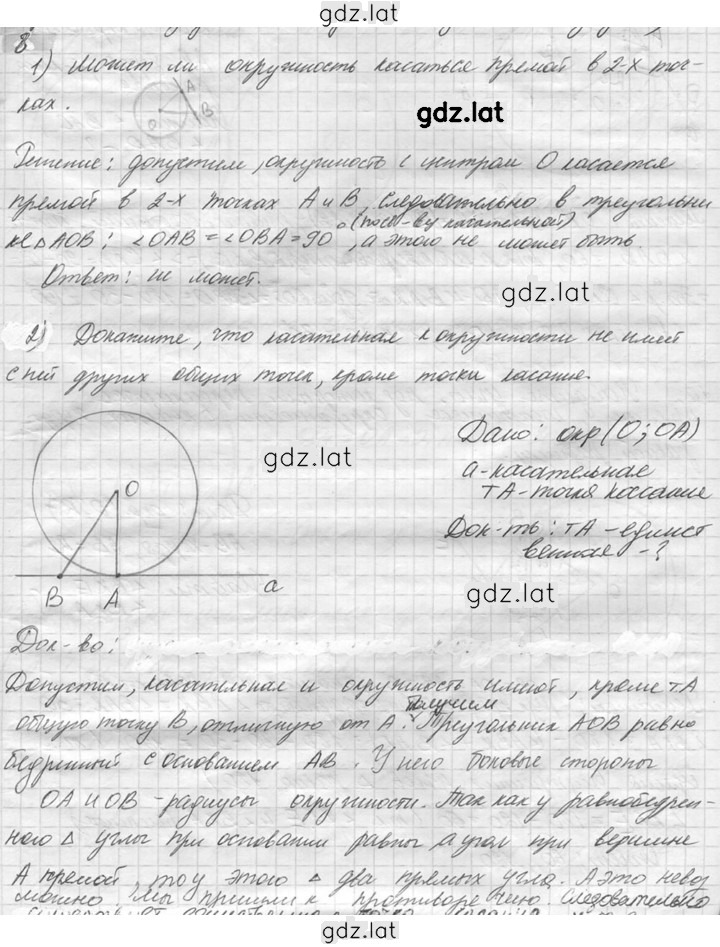 gdz.lat
8
1) Может ли окружность касаться прямой в 2-х точ-
ках.
A
B
O
gdz.lat
Решение: допустим, окружность с центром О касается
прямой в 2-х точках А и В, следовательно в треугольни
ке △AOB: ∠OAB = ∠OBA = 90° (по св-ву касательной), а этого не может быть.
Ответ: не может.
gdz.lat
2) Докажите, что касательная к окружности не имеет
с ней других общих точек, кроме точки касания.
gdz.lat
O
B A a
Дано: окр (O; OA)
a - касательная
тА - точка касания
Док-ть: тА - единст
венная - ?
gdz.lat
Док-во:
Допустим, касательная и окружность имеют, кроме тА
общую точку В, отличную от А. Получим Треугольник АОВ равно
бедренный с основанием АВ. У него боковые стороны
ОА и ОВ - радиусы окружности. Так как у равнобедрен-
ного △ углы при основании равны, а угол при вершине
А прямой, то у этого △ два прямых угла. А это невоз
можно, мы пришли к противоречию. Следовательно
gdz.lat